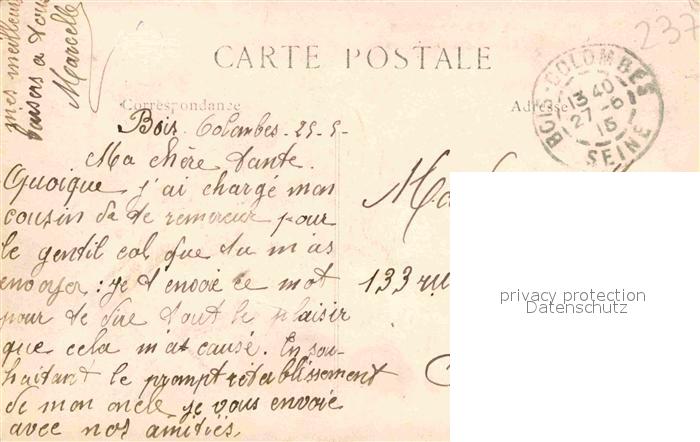 mes meilleurs
baisers a tous
Marcelle
237
CARTE POSTALE
Correspondance
Adresse
BOIS-COLOMBES
13 40
27-6
15
SEINE
Bois. Colombes. 25-5-
Ma chère tante.
Quoique j'ai chargé mon
cousin de te remercier pour
le gentil col que tu m'as
envoyer: je t'envoie ce mot
pour te dire tout le plaisir
que cela m'at causé. En sou-
haitant le prompt rétablissement
de mon oncle je vous envoie
avec nos amitiés,
133 ru
privacy protection
Datenschutz